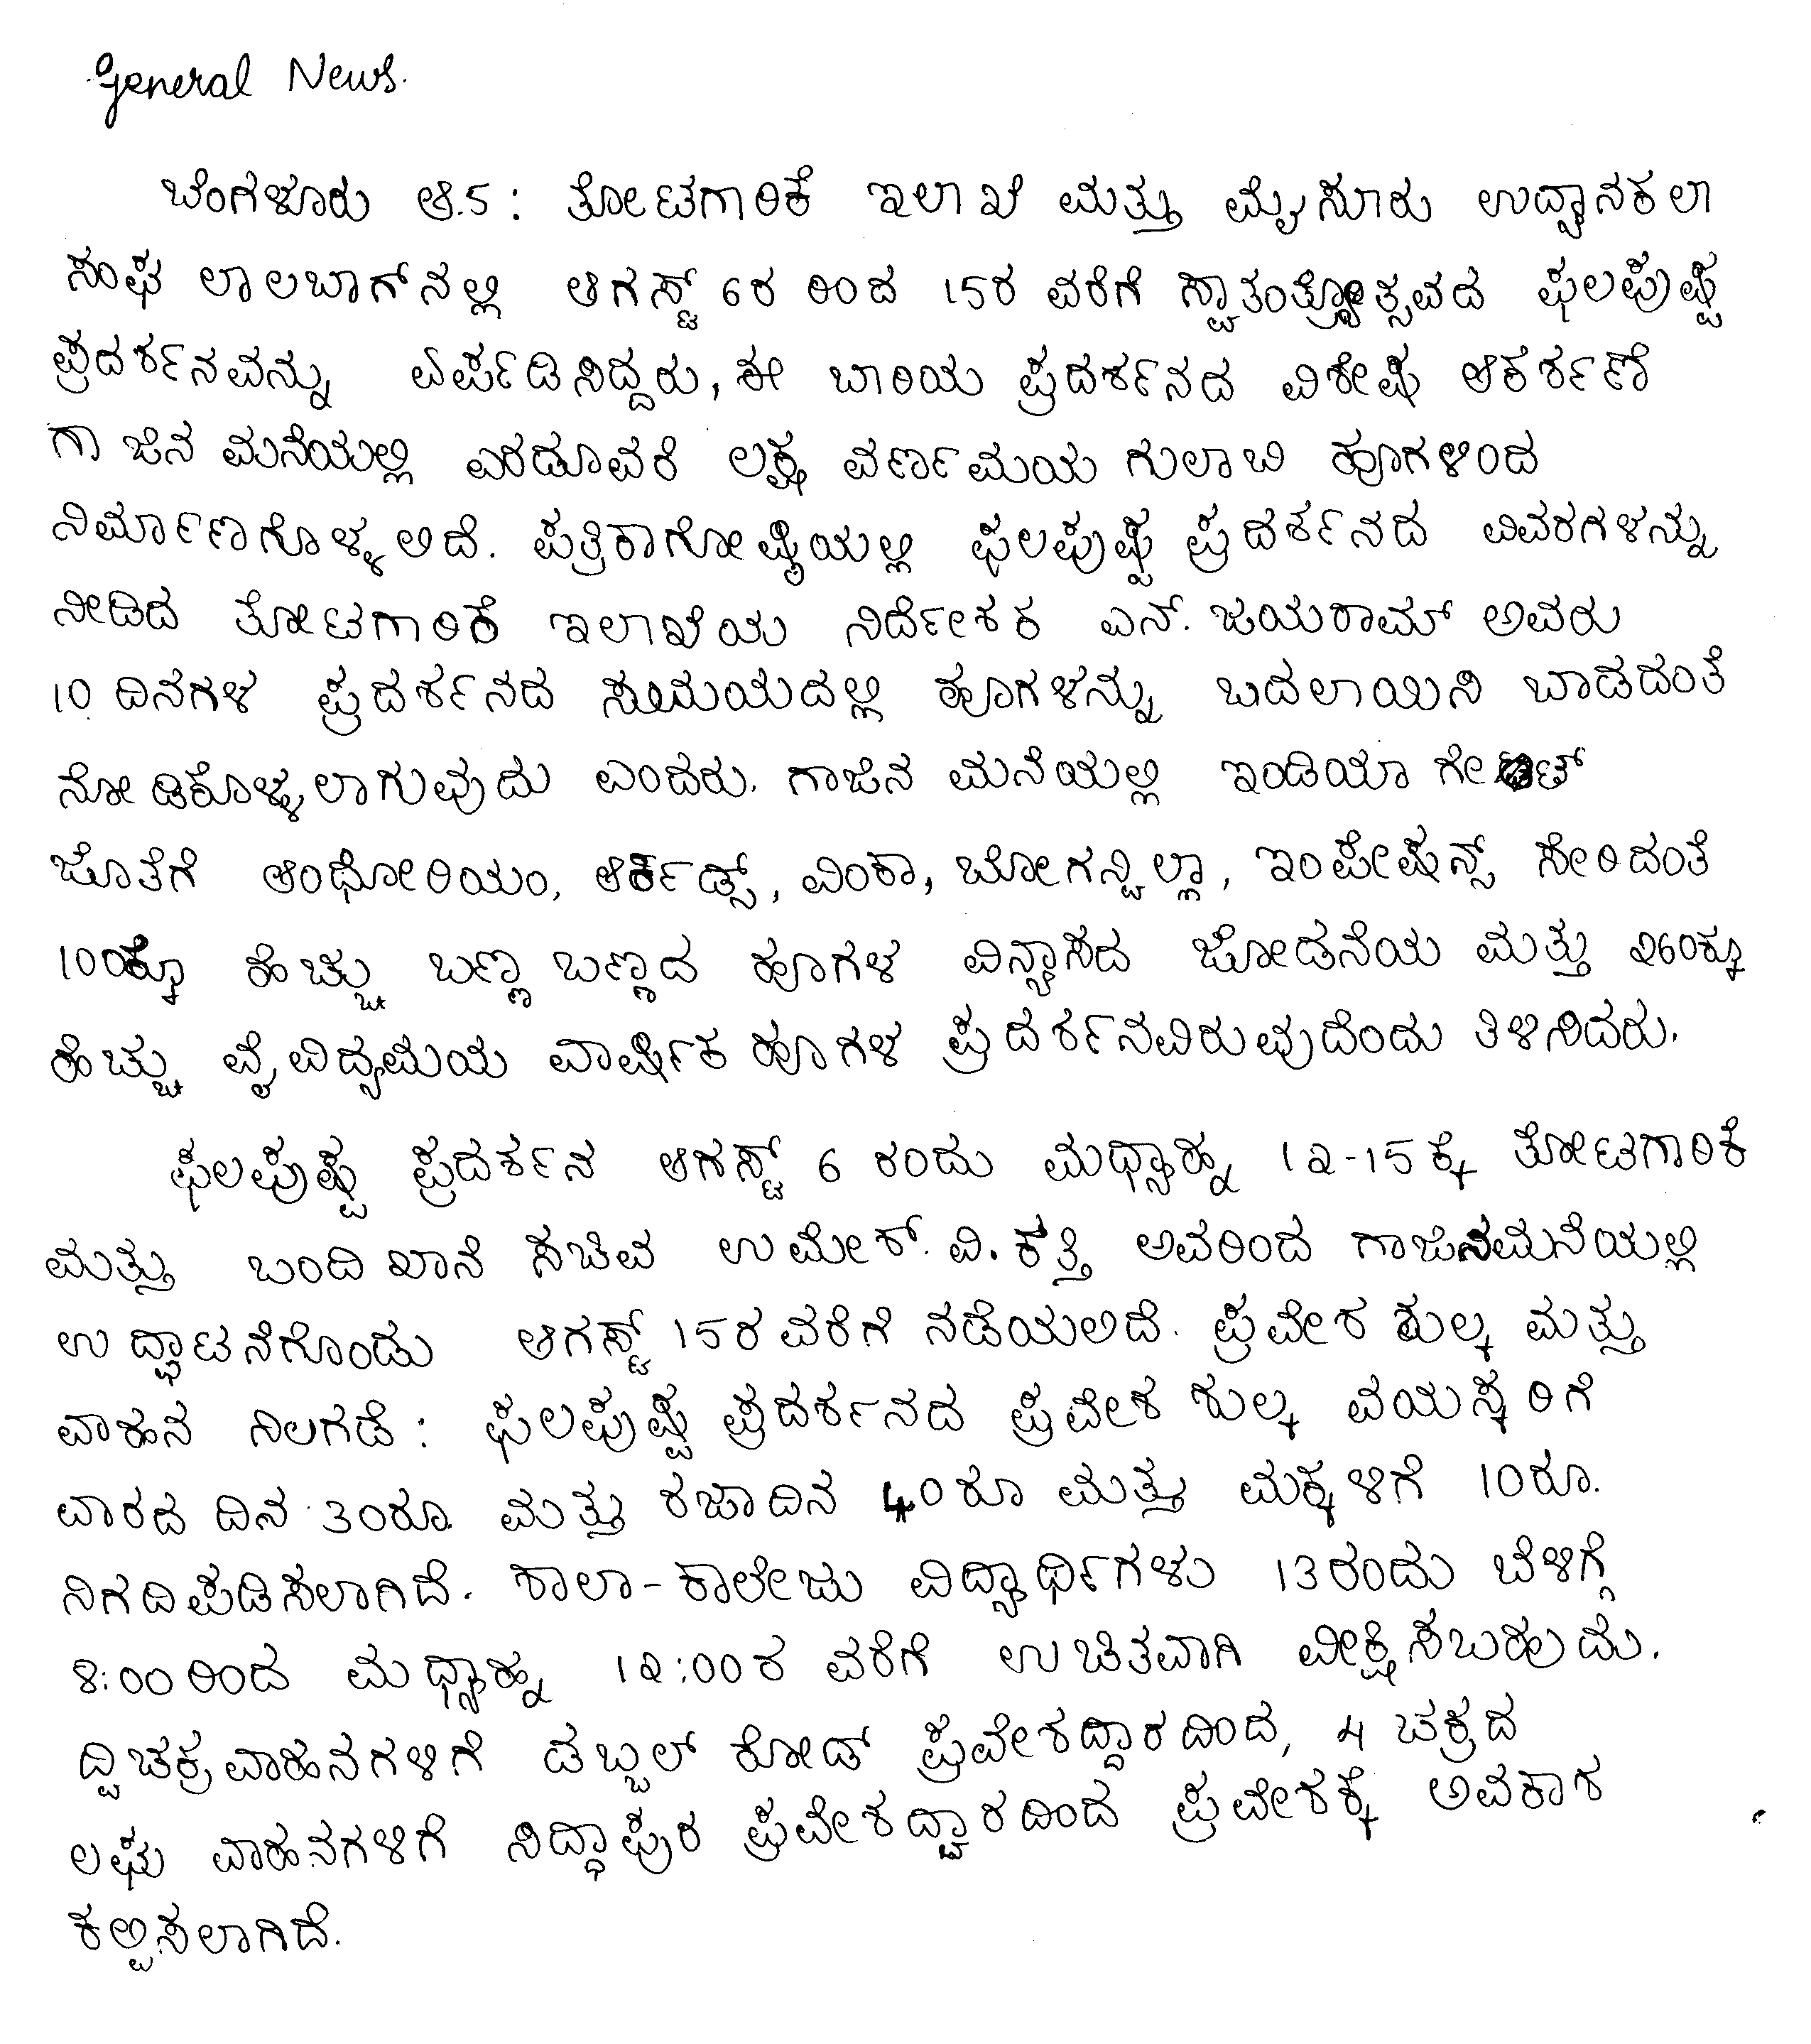 General News.
ಬೆಂಗಳೂರು ಆ.5: ತೋಟಗಾರಿಕೆ ಇಲಾಖೆ ಮತ್ತು ಮೈಸೂರು ಉದ್ಯಾನಕಲಾ
ಸಂಘ ಲಾಲಬಾಗ್‌ನಲ್ಲಿ ಆಗಸ್ಟ್ 6ರ ರಿಂದ 15ರ ವರೆಗೆ ಸ್ವಾತಂತ್ರ್ಯೋತ್ಸವದ ಫಲಪುಷ್ಪ
ಪ್ರದರ್ಶನವನ್ನು ಏರ್ಪಡಿಸಿದ್ದರು, ಈ ಬಾರಿಯ ಪ್ರದರ್ಶನದ ವಿಶೇಷ ಆಕರ್ಶಣೆ
ಗಾಜಿನ ಮನೆಯಲ್ಲಿ ಎರಡೂವರೆ ಲಕ್ಷ ವರ್ಣಮಯ ಗುಲಾಬಿ ಹೂಗಳಿಂದ
ನಿರ್ಮಾಣಗೊಳ್ಳಲಿದೆ. ಪತ್ರಿಕಾಗೋಷ್ಠಿಯಲ್ಲಿ ಫಲಪುಷ್ಪ ಪ್ರದರ್ಶನದ ವಿವರಗಳನ್ನು
ನೀಡಿದ ತೋಟಗಾರಿಕೆ ಇಲಾಖೆಯ ನಿರ್ದೇಶಕ ಎನ್. ಜಯರಾಮ್ ಅವರು
10 ದಿನಗಳ ಪ್ರದರ್ಶನದ ಸಮಯದಲ್ಲಿ ಹೂಗಳನ್ನು ಬದಲಾಯಿಸಿ ಬಾಡದಂತೆ
ನೋಡಿಕೊಳ್ಳಲಾಗುವುದು ಎಂದರು. ಗಾಜಿನ ಮನೆಯಲ್ಲಿ ಇಂಡಿಯಾ ಗೇಟ್
ಜೊತೆಗೆ ಆಂಥೋರಿಯಂ, ಆರ್ಕಿಡ್ಸ್, ವಿಂಕಾ, ಬೋಗನ್ವಿಲ್ಲಾ, ಇಂಪೇಷನ್ಸ್ ಸೇರಿದಂತೆ
100ಕ್ಕೂ ಹೆಚ್ಚು ಬಣ್ಣ ಬಣ್ಣದ ಹೂಗಳ ವಿನ್ಯಾಸದ ಜೋಡನೆಯ ಮತ್ತು 260ಕ್ಕೂ
ಹೆಚ್ಚು ವೈವಿದ್ಯಮಯ ವಾರ್ಷಿಕ ಹೂಗಳ ಪ್ರದರ್ಶನವಿರುವುದೆಂದು ತಿಳಿಸಿದರು.
ಫಲಪುಷ್ಪ ಪ್ರದರ್ಶನ ಆಗಸ್ಟ್ 6 ರಂದು ಮಧ್ಯಾಹ್ನ 12-15ಕ್ಕೆ ತೋಟಗಾರಿಕೆ
ಮತ್ತು ಬಂದಿಖಾನೆ ಸಚಿವ ಉಮೇಶ್. ವಿ. ಕತ್ತಿ ಅವರಿಂದ ಗಾಜಿನಮನೆಯಲ್ಲಿ
ಉದ್ಘಾಟನೆಗೊಂಡು ಆಗಸ್ಟ್ 15ರ ವರೆಗೆ ನಡೆಯಲಿದೆ. ಪ್ರವೇಶ ಶುಲ್ಕ ಮತ್ತು
ವಾಹನ ನಿಲಗಡೆ: ಫಲಪುಷ್ಪ ಪ್ರದರ್ಶನದ ಪ್ರವೇಶ ಶುಲ್ಕ ವಯಸ್ಕರಿಗೆ
ವಾರದ ದಿನ 30ರೂ ಮತ್ತು ರಜಾದಿನ 40ರೂ ಮತ್ತು ಮಕ್ಕಳಿಗೆ 10ರೂ.
ನಿಗದಿಪಡಿಸಲಾಗಿದೆ. ಶಾಲಾ-ಕಾಲೇಜು ವಿದ್ಯಾರ್ಥಿಗಳು 13ರಂದು ಬೆಳಿಗ್ಗೆ
8:00ರಿಂದ ಮಧ್ಯಾಹ್ನ 12:00ರ ವರೆಗೆ ಉಚಿತವಾಗಿ ವೀಕ್ಷಿಸಬಹುದು.
ದ್ವಿಚಕ್ರವಾಹನಗಳಿಗೆ ಡಬ್ಬಲ್ ರೋಡ್ ಪ್ರವೇಶದ್ವಾರದಿಂದ, 4 ಚಕ್ರದ
ಲಘು ವಾಹನಗಳಿಗೆ ಸಿದ್ಧಾಪುರ ಪ್ರವೇಶದ್ವಾರದಿಂದ ಪ್ರವೇಶಕ್ಕೆ ಅವಕಾಶ
ಕಲ್ಪಿಸಲಾಗಿದೆ.